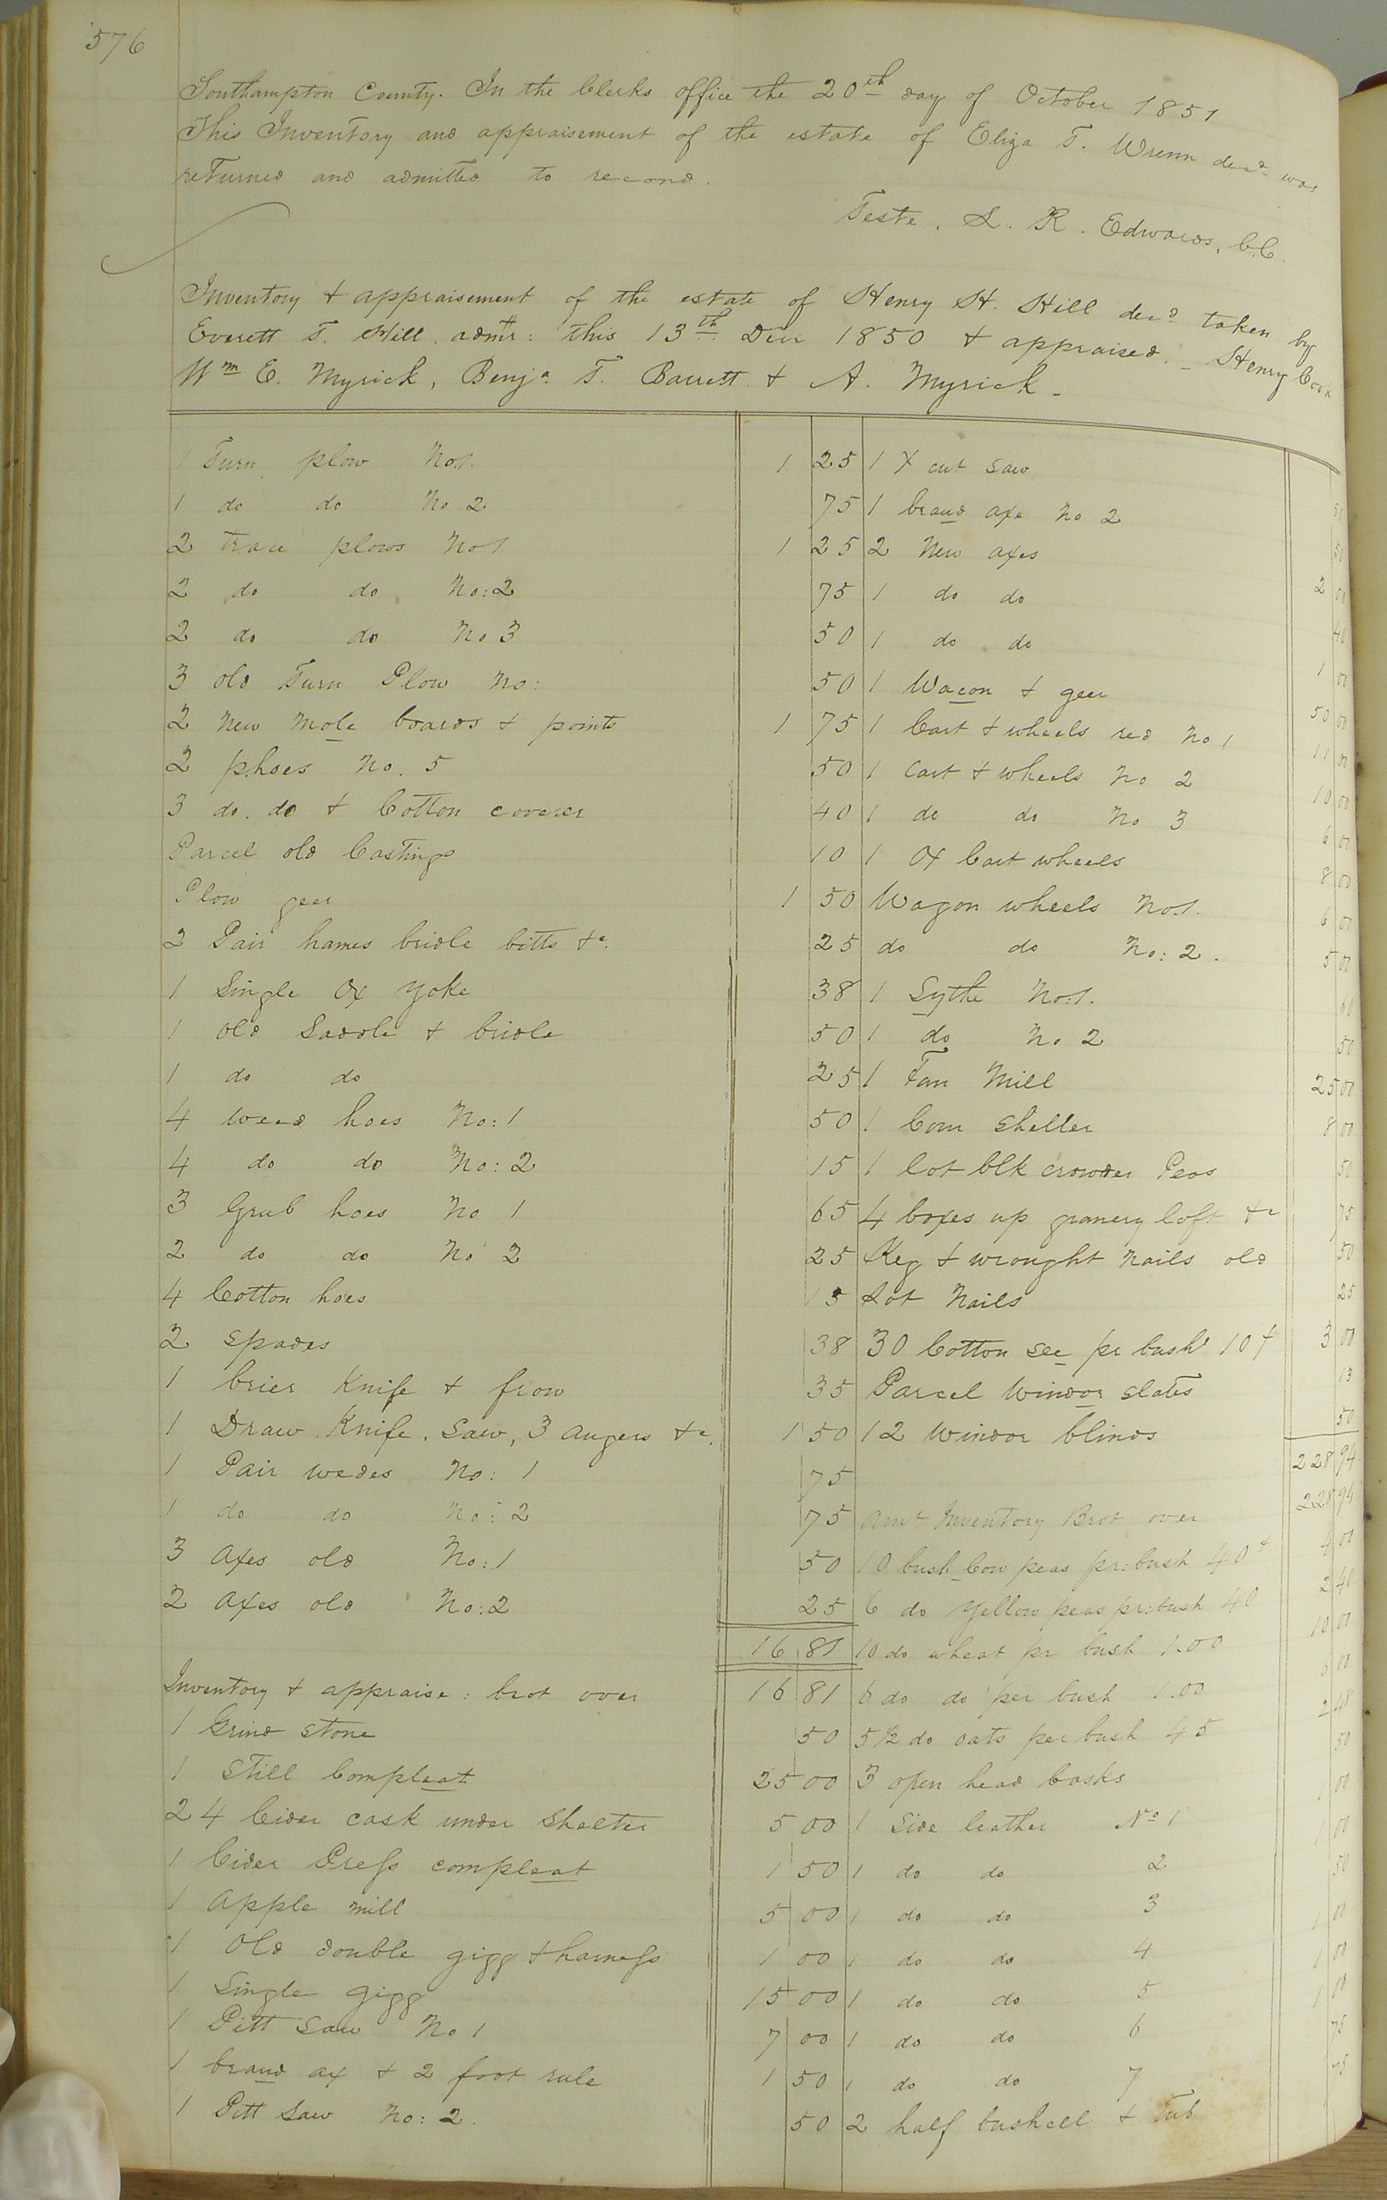 576
Southampton County. In the Clerks office the 20th day of October 1851
This Inventory and appraisement of the estate of Eliza T. Wrenn decd was
returned and admitted to record.
Teste, L. R. Edwards, C.C.
Inventory & appraisement of the estate of Henry H. Hill decd taken by
Everett T. Hill admr: this 13th Decr 1850 & appraised - Henry Cook
Wm E. Myrick, Benja. T. Barrett & A. Myrick -
1 Turn plow No1. 1 25
1 do do No 2 75
2 trace plows No1 1 25
2 do do No:2 75
2 do do No 3 50
3 old Turn Plow No: 50
2 New mole boards & points 1 75
2 p.hoes No. 5 50
3 do. do & Cotton coverer 40
Parcel old Castings 10
Plow geer 1 50
2 Pair hames bridle bitts &c. 25
1 Single Ox Yoke 38
1 old Saddle & bridle 50
1 do do 25
4 weed hoes No:1 50
4 do do No:2 15
3 Grub hoes No 1 65
2 do do No 2 25
4 Cotton hoes 15
2 Spades 38
1 brier Knife & frow 35
1 Draw Knife. Saw, 3 augers &c. 1 50
1 Pair wedes No: 1 75
1 do do No: 2 75
3 Axes old No:1 50
2 Axes old No:2 25
16 81
Inventory & appraise: brot over 16 81
1 Grind stone 50
1 Still Compleat 25 00
24 Cider cask under Shelter 5 00
1 Cider Press compleat 1 50
1 Apple mill 5 00
1 Old double gigg & harness 1 00
1 Single gigg 15 00
1 Pitt Saw No 1 7 00
1 braud ax & 2 foot rule 1 50
1 Pitt Saw No: 2. 50
1 X cut Saw 50
1 braud axe No 2 50
2 New axes 2 00
1 do do 40
1 do do 1 00
1 Wacon & geer 50 00
1 Cart & wheels red No 1 11 00
1 Cart & wheels No 2 10 00
1 do do No 3 6 00
1 Ox Cart wheels 8 00
Wagon wheels No1. 6 00
do do No: 2. 5 00
1 Sythe No:1. 60
1 do No 2 50
1 Fan Mill 25 00
1 Corn Sheller 8 00
1 lot blk crowder Peas 50
4 boxes up granery loft &c 75
Keg & wrought Nails old 50
Lot Nails 25
30 Cotton see pr bushl 10¢ 3 00
Parcel Window slates 13
12 Window blinds 50
228 94
Amt Inventory Brot over 228 94
10 bush. Cow peas pr:bush 40¢ 4 00
6 do Yellow peas pr:bush 40 2 40
10 do wheat pr bush 1.00 10 00
6 do do per bush 1.00 6 00
5 1/2 do oats per bush 45 2 48
3 open head Casks 50
1 Side leather No 1 1 00
1 do do 2 1 00
1 do do 3 50
1 do do 4 1 00
1 do do 5 1 00
1 do do 6 1 00
1 do do 7 75
2 half bushell & Tub 75